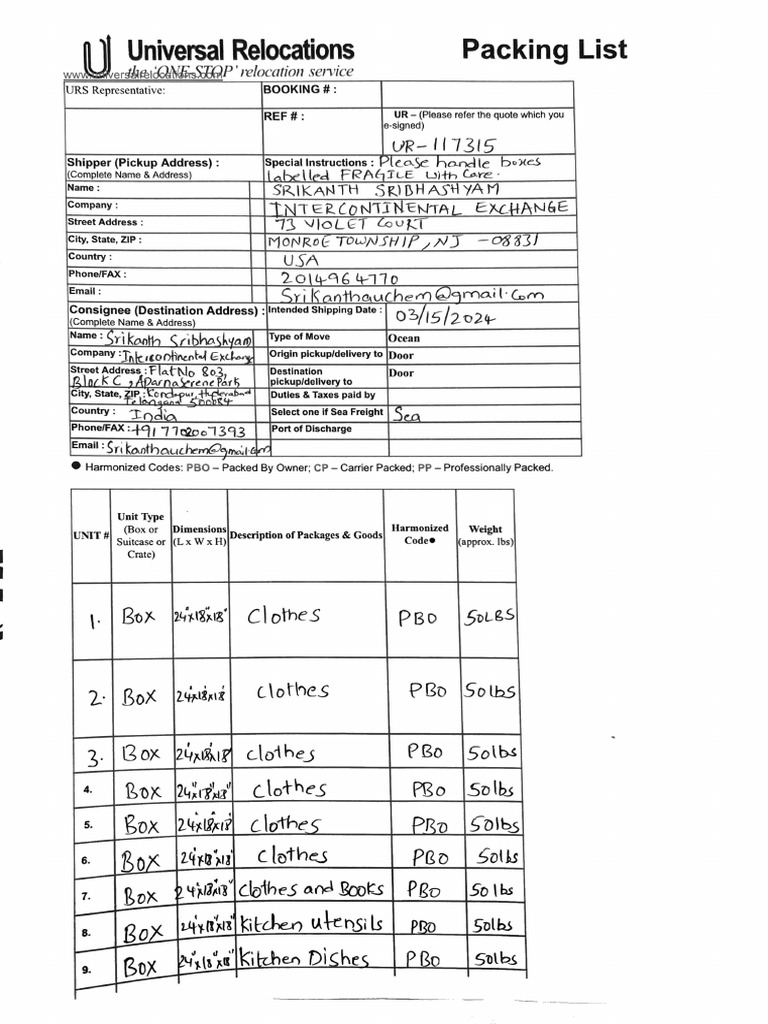 Universal Relocations
Packing List
the 'ONE STOP' relocation service
www.universalrelocations.com
URS Representative:
BOOKING # :
REF # :
UR – (Please refer the quote which you e-signed)
UR-117315
Shipper (Pickup Address) :
(Complete Name & Address)
Special Instructions : Please handle boxes
labelled FRAGILE with care.
Name : SRIKANTH SRIBHASHYAM
Company : INTERCONTINENTAL EXCHANGE
Street Address : 73 VIOLET COURT
City, State, ZIP : MONROE TOWNSHIP, NJ -08831
Country : USA
Phone/FAX : 2014964770
Email : Srikanthauchem@gmail.com
Consignee (Destination Address) :
(Complete Name & Address)
Intended Shipping Date : 03/15/2024
Name : Srikanth Sribhashyam
Type of Move Ocean
Company : Intercontinental Exchange
Origin pickup/delivery to Door
Street Address : Flat No 803,
Block C, Aparna Serene Park
Destination pickup/delivery to Door
City, State, ZIP : Kondapur, Hyderabad
Telangana 500084
Duties & Taxes paid by
Country : India
Select one if Sea Freight Sea
Phone/FAX : +917702007393
Port of Discharge
Email : Srikanthauchem@gmail.com
● Harmonized Codes: PBO – Packed By Owner; CP – Carrier Packed; PP – Professionally Packed.
UNIT # Unit Type (Box or Suitcase or Crate) Dimensions (L x W x H) Description of Packages & Goods Harmonized Code● Weight (approx. lbs)
1. Box 24"x18"x18" Clothes PBO 50LBS
2. Box 24"x18"x18" clothes PBO 50lbs
3. Box 24"x18"x18" clothes PBO 50lbs
4. Box 24"x18"x18" clothes PBO 50lbs
5. Box 24"x18"x18" clothes PBO 50lbs
6. Box 24"x18"x18" clothes PBO 50lbs
7. Box 24"x18"x18" clothes and Books PBO 50lbs
8. Box 24"x18"x18" kitchen utensils PBO 50lbs
9. Box 24"x18"x18" kitchen Dishes PBO 50lbs